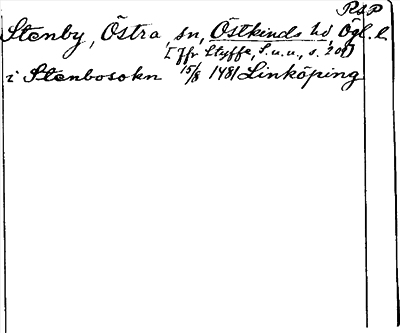 RAP
Stenby, Östra, sn, Östkinds hd, Ögl. l.
[Jfr Styffe, S.u.u., s. 201]
i Stenbosokn 15/8 1481 Linköping